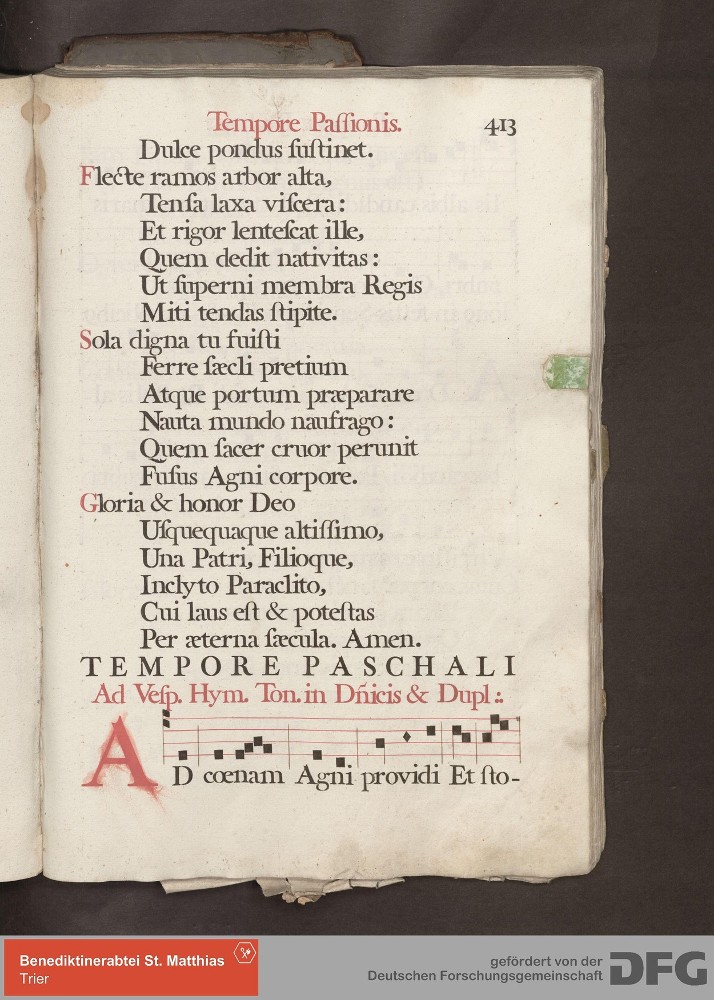 Tempore Paſſionis. 413
Dulce pondus ſuſtinet.
Flecte ramos arbor alta,
Tenſa laxa viſcera:
Et rigor lenteſcat ille,
Quem dedit nativitas:
Ut ſuperni membra Regis
Miti tendas ſtipite.
Sola digna tu fuiſti
Ferre ſæcli pretium
Atque portum præparare
Nauta mundo naufrago:
Quem ſacer cruor perunit
Fuſus Agni corpore.
Gloria & honor Deo
Uſquequaque altiſſimo,
Una Patri, Filioque,
Inclyto Paraclito,
Cui laus eſt & poteſtas
Per æterna ſæcula. Amen.
TEMPORE PASCHALI
Ad Veſp. Hym. Ton. in Dñicis & Dupl:.
AD cœnam Agni providi Et ſto-
Benediktinerabtei St. Matthias
Trier
gefördert von der
Deutschen Forschungsgemeinschaft DFG